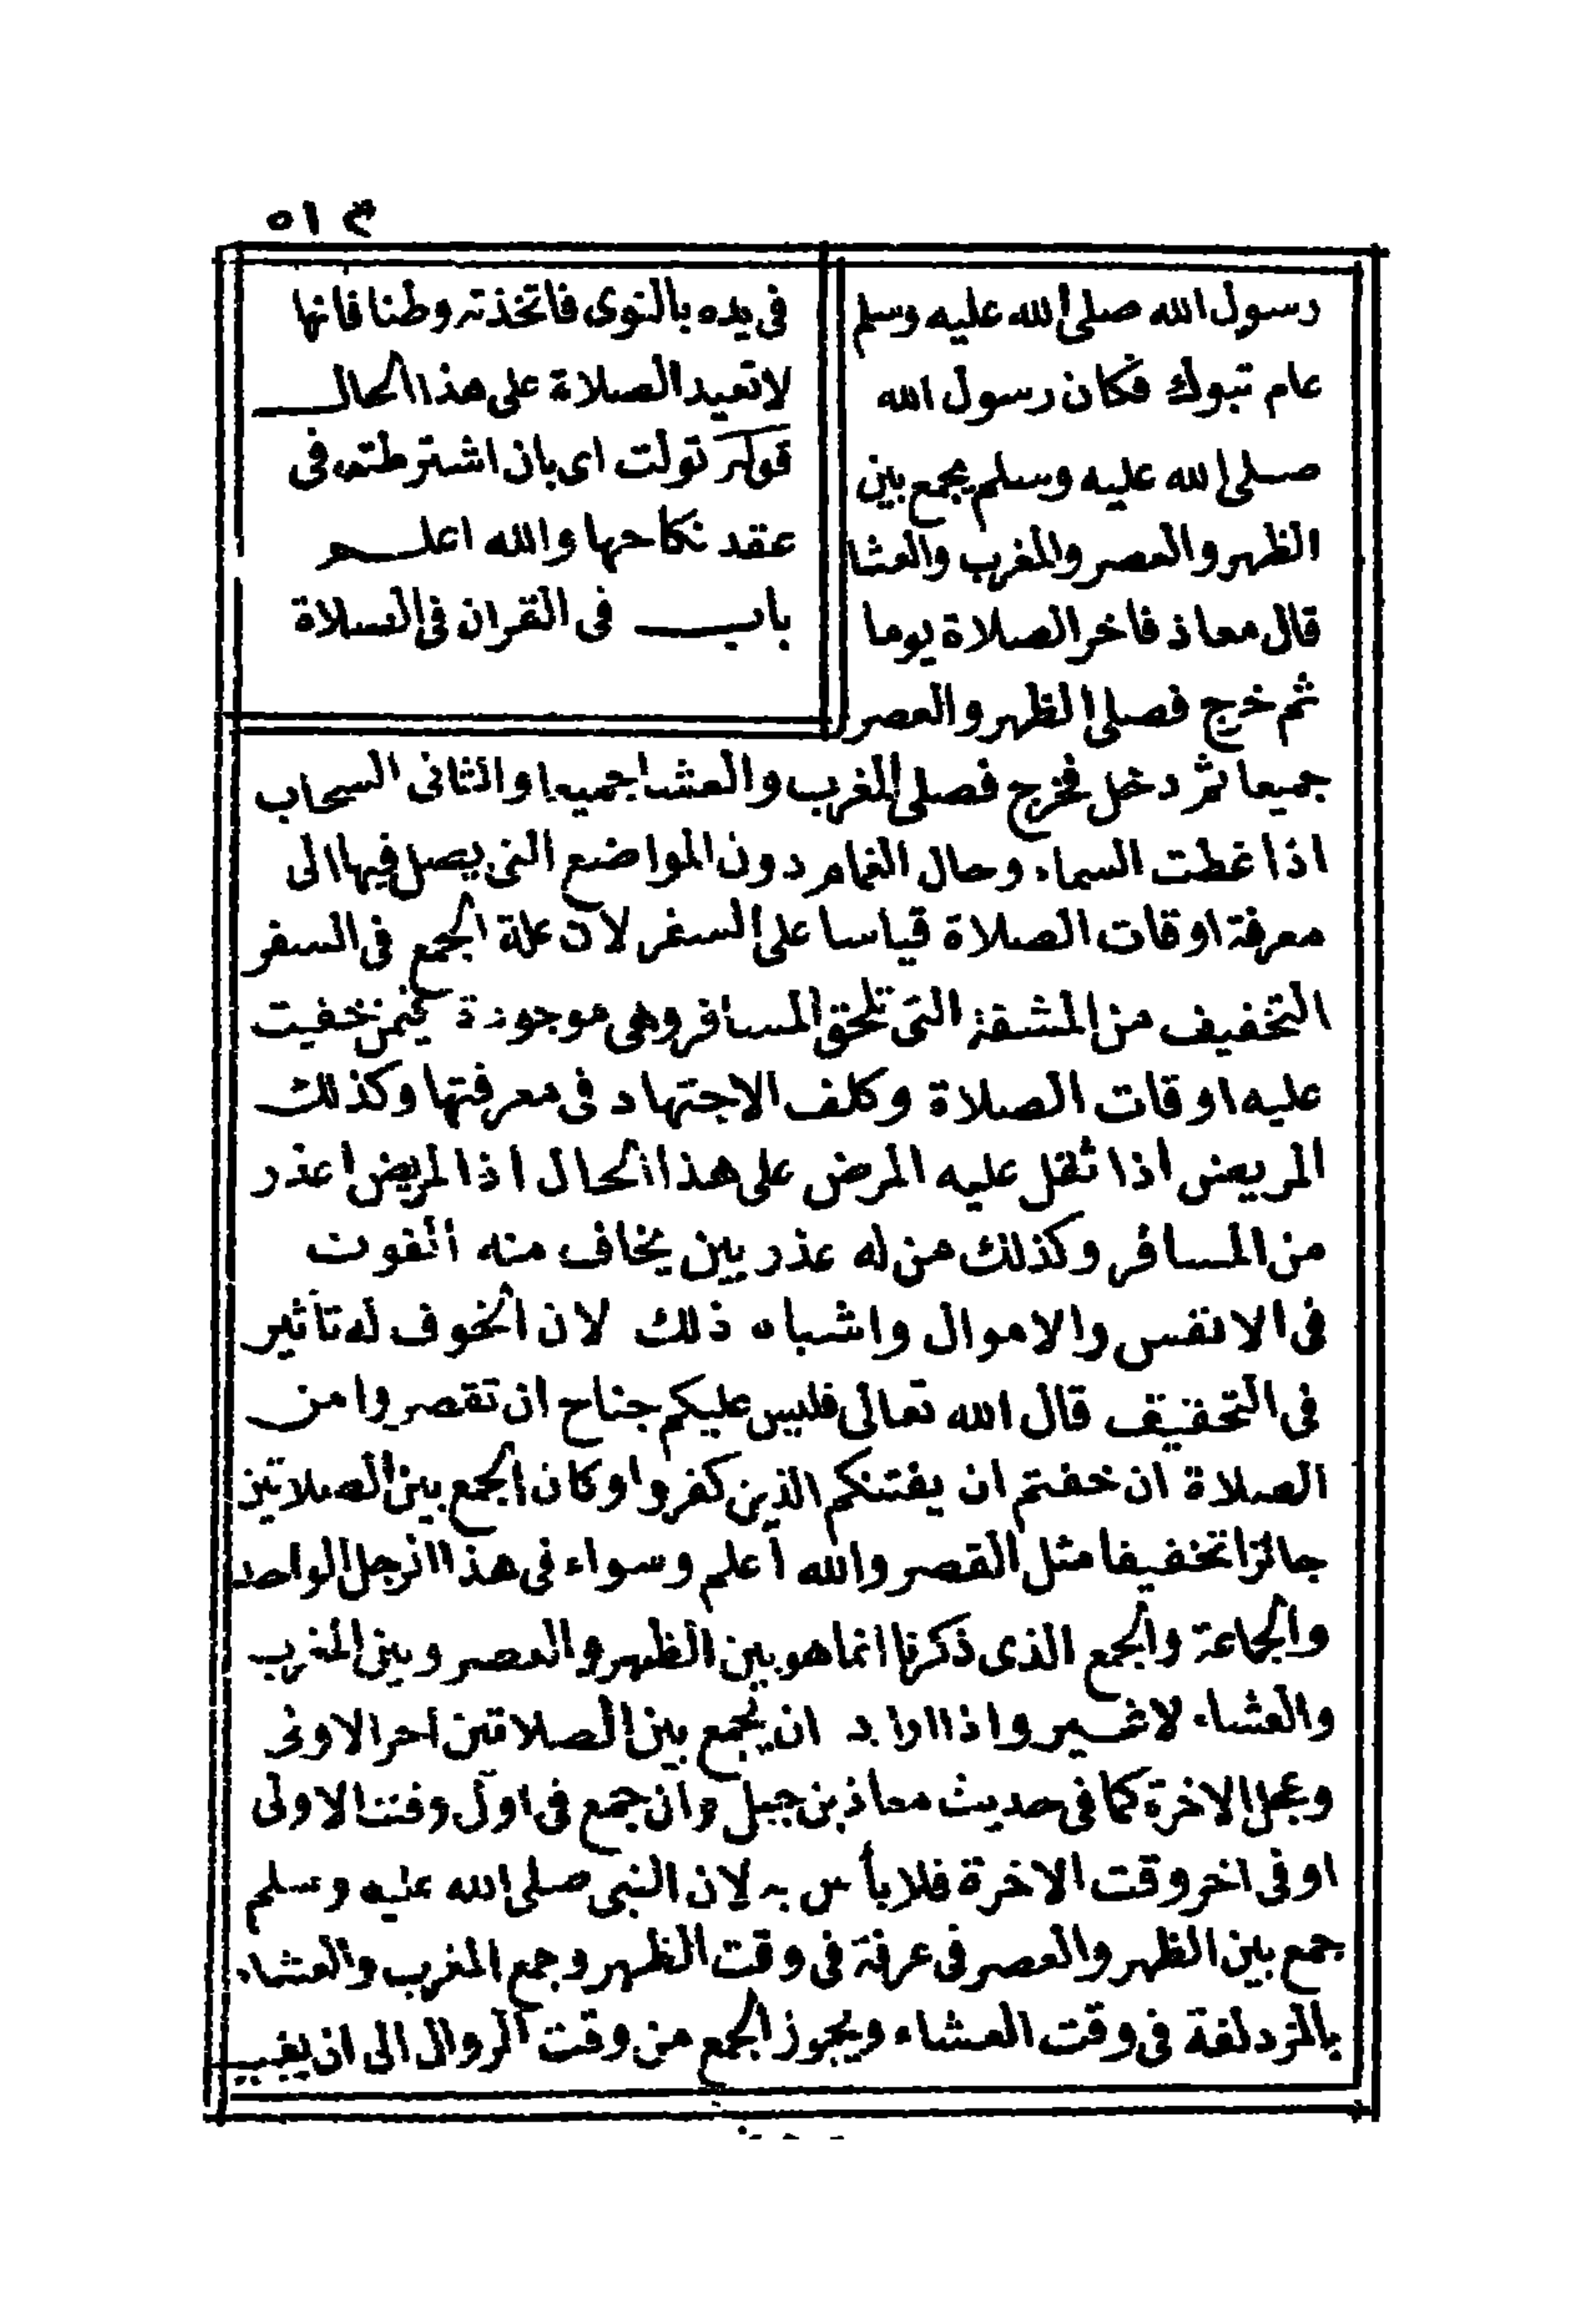 ٥١٣
رسول الله صلى الله عليه وسلم
عام تبوك فكان رسول الله
صلى الله عليه وسلم يجمع بين
الظهر والعصر والمغرب والعشا
قال معاذ فاخر الصلاة يوما
ثم خرج فصلى الظهر والعصر
فى يده بالنوى فاتخذته وطنا فانها
لا تعيد الصلاة على هذا الحال
قوله تولت اى بان اشترطته فى
عقد نكاحها والله اعلم
باب فى القران فى الصلاة
جميعا ثم دخل فخرج فصلى المغرب والعشا جميعا والثانى السحاب
اذا غطت السماء وحال الغمام دون المواضع التى يصل فيها الى
معرفة اوقات الصلاة قياسا على السفر لان علة الجمع فى السفر
التخفيف من المشقة التى تلحق المسافر وهى موجودة فيمن خفيت
عليه اوقات الصلاة وكلف الاجتهاد فى معرفتها وكذلك
المريض اذا ثقل عليه المرض على هذا الحال اذ المريض اعذر
من المسافر وكذلك من له عذر بين يخاف منه الفوت
فى الانفس والاموال واشباه ذلك لان الخوف له تأثير
فى التخفيف قال الله تعالى فليس عليكم جناح ان تقصروا من
الصلاة ان خفتم ان يفتنكم الذين كفروا وكان الجمع بين الصلاتين
جائزا تخفيفا مثل القصر والله أعلم وسواء فى هذا الرجل الواحد
والجماعة والجمع الذى ذكرنا انما هو بين الظهر والعصر وبين المغرب
والعشاء لا غير واذا اراد ان يجمع بين الصلاتين اخر الاولى
وعجل الاخرة كما فى حديث معاذ بن جبل وان جمع فى اول وقت الاولى
او فى اخر وقت الاخرة فلا بأس به لان النبى صلى الله عليه وسلم
جمع بين الظهر والعصر فى عرفة فى وقت الظهر وجمع المغرب والعشاء
بالمزدلفة فى وقت العشاء ويجوز الجمع من وقت الزوال الى ان يغيب